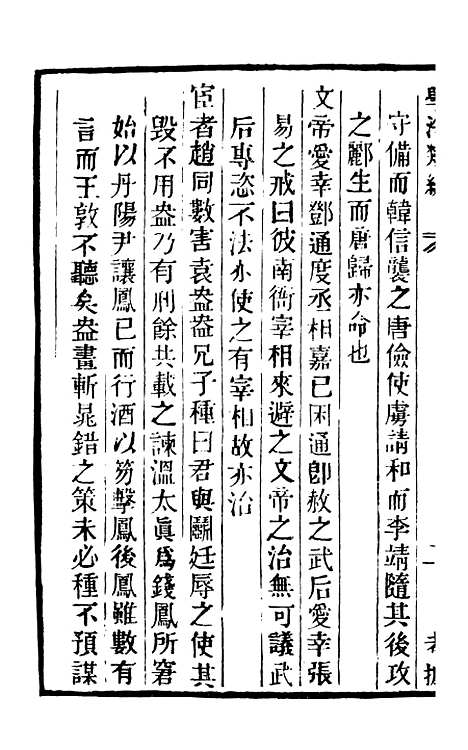 守備而韓信襲之唐儉使虜請和而李靖隨其後攻
之酈生而唐歸亦命也
文帝愛幸鄧通度丞相嘉已困通卽赦之武后愛幸張
易之戒曰彼南衙宰相來避之文帝之治無可議武
后專恣不法亦使之有宰相故亦治
宦者趙同數害袁盎盎兄子種曰君與鬭廷辱之使其
毀不用盎乃有刑餘共載之諫溫太眞爲錢鳳所窘
始以丹陽尹讓鳳已而行酒以笏擊鳳後鳳雖數有
言而王敦不聽矣盎畫斬晁錯之策未必種不預謀